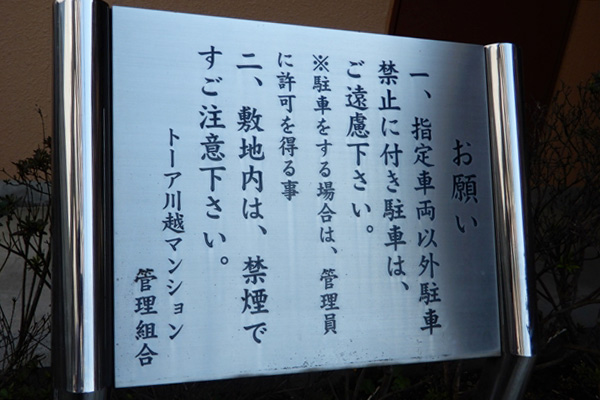 お願い
一、指定車両以外駐車
禁止に付き駐車は、
ご遠慮下さい。
※駐車をする場合は、管理員
に許可を得る事
二、敷地内は、禁煙で
すご注意下さい。
トーア川越マンション
管理組合